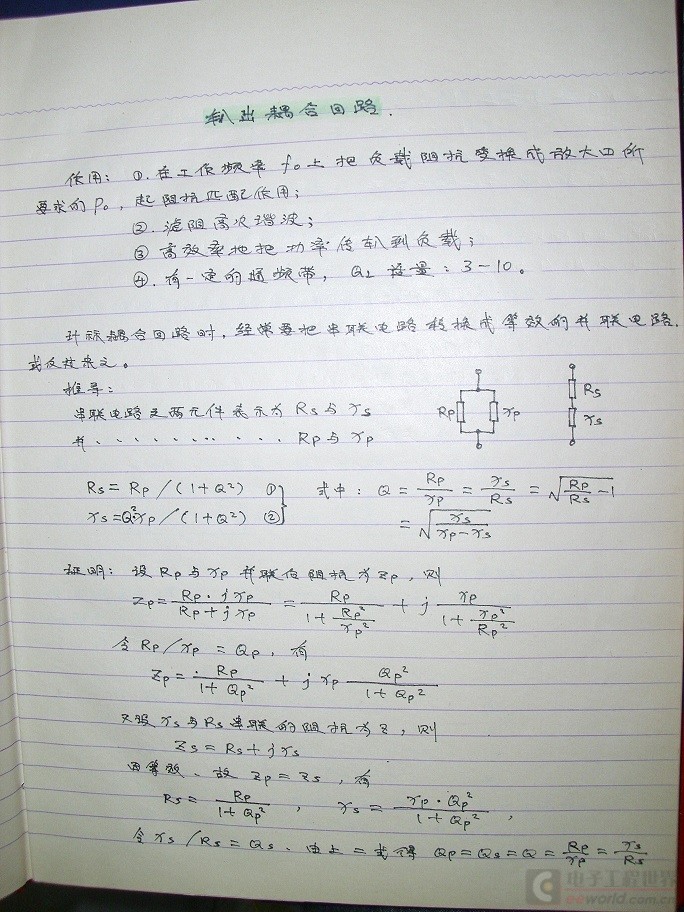 输出耦合回路.
作用: ①. 在工作频率 f₀ 上把负载阻抗变换成放大四所
要求的 P₀, 起阻抗匹配作用;
②. 滤阻高次谐波;
③ 高效率地把功率传输到负载;
④. 有一定的通频带, Q_L 适量: 3-10。
计标耦合回路时, 经常要把串联电路转换成等效的并联电路.
或反过来之。
推导:
串联电路之两元件表示为 Rs 与 xs
并 . . . . . . . . . . . Rp 与 xp
Rp xp Rs xs
Rs = Rp / (1+Q²) ①
xs = Q²·xp / (1+Q²) ②
式中: Q = Rp/xp = xs/Rs = √(Rp/Rs - 1)
= √(xs/(xp-xs))
证明: 设 Rp 与 xp 并联的阻抗为 Zp, 则
Zp = Rp·jxp/(Rp+jxp) = Rp/(1+Rp²/xp²) + j xp/(1+xp²/Rp²)
令 Rp/xp = Qp, 有
Zp = Rp/(1+Qp²) + j xp Qp²/(1+Qp²)
又设 xs 与 Rs 串联的阻抗为 Z, 则
Zs = Rs + jxs
因等效、故 Zp = Zs, 有
Rs = Rp/(1+Qp²), xs = xp·Qp²/(1+Qp²),
令 xs/Rs = Qs、由上二式得 Qp = Qs = Q = Rp/xp = xs/Rs
电子工程世界
eeworld.com.cn